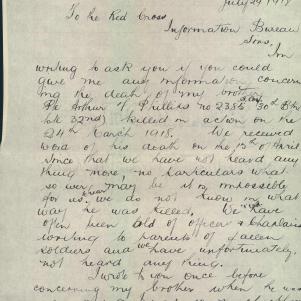 July 29 1918
To the Red Cross
Information Bureau
Sirs,
Im
writing to ask you if you could
give me any information concern
ing the death of my brother
Pte Arthur J. Phillips no 2385 30th Btn
late 32nd killed in action on the
24th March 1918. We received
word of his death on the 13th of April
since that we have not heard any
thing more, no particulars what
so ever may be it is impossible
for us. we do not know in what
way he was killed. We have
often been told of officer & Chaplains
writing to parents of fallen
soldiers and we have unfortunately
not heard any thing.
I wrote to you once before
concerning my brother when he was